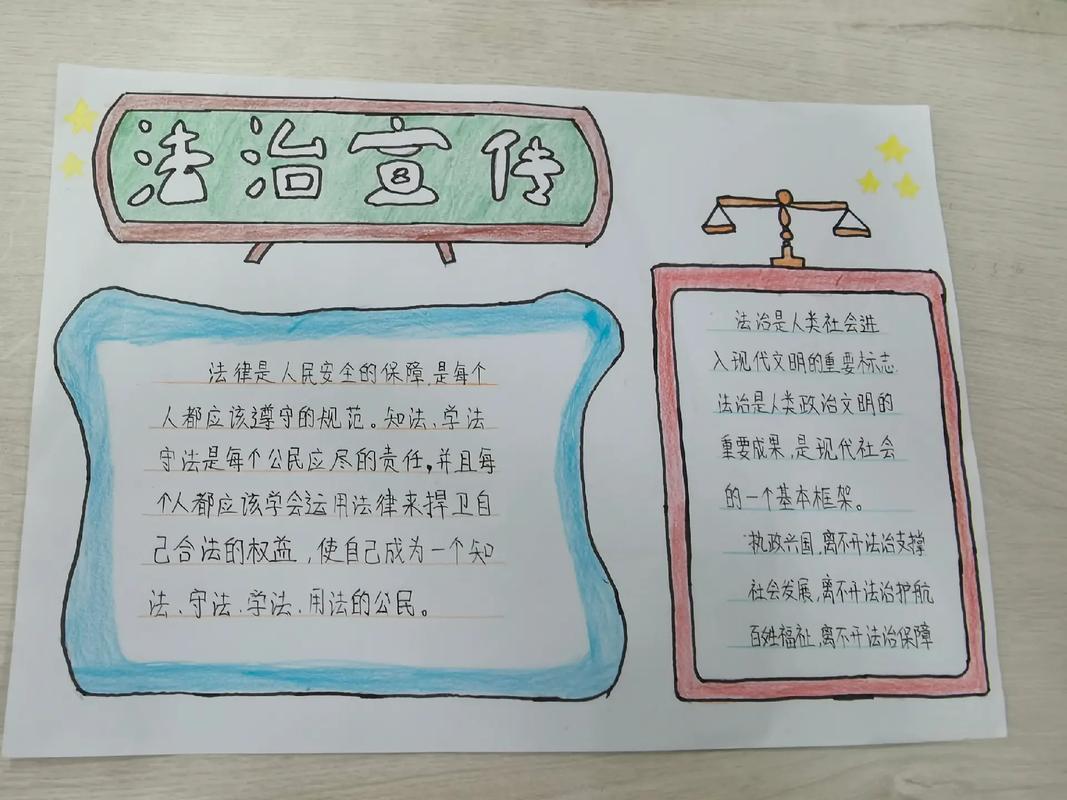 法治宣传
法律是人民安全的保障,是每个
人都应该遵守的规范。知法、学法
守法是每个公民应尽的责任,并且每
个人都应该学会运用法律来捍卫自
己合法的权益,使自己成为一个知
法、守法、学法、用法的公民。
法治是人类社会进
入现代文明的重要标志.
法治是人类政治文明的
重要成果,是现代社会
的一个基本框架。
执政兴国,离不开法治支撑
社会发展,离不开法治护航
百姓福祉,离不开法治保障